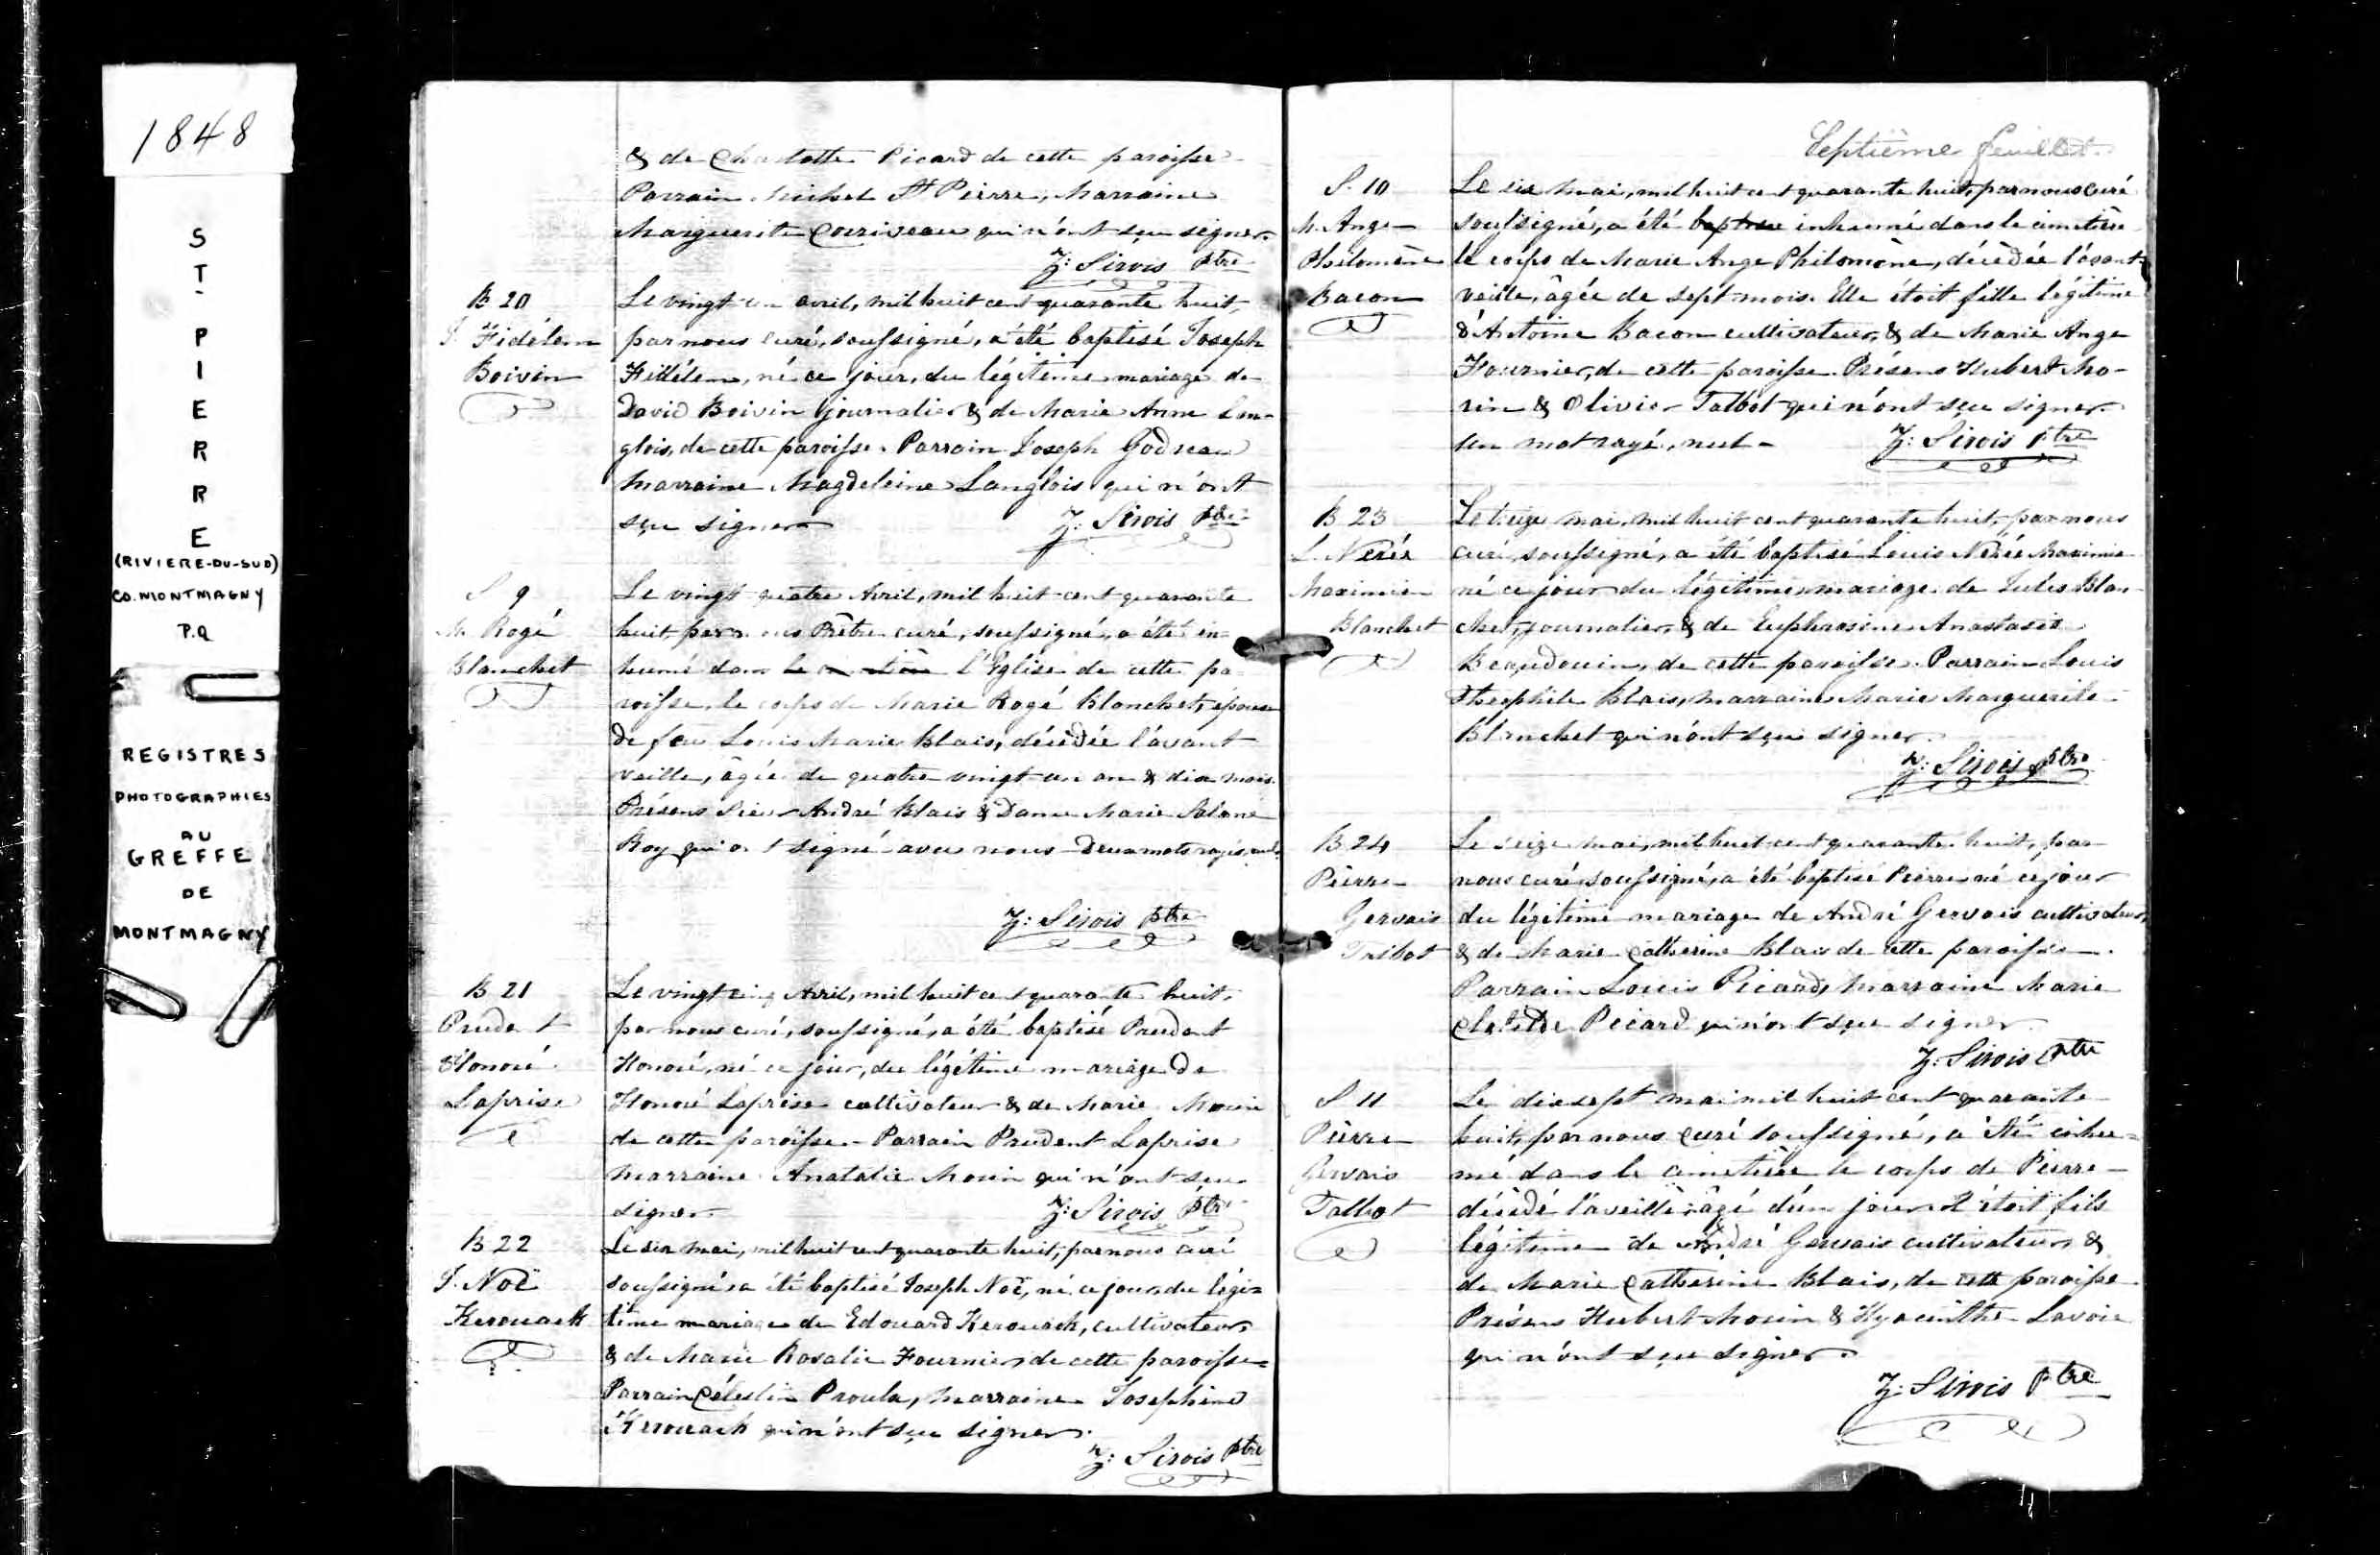 1848
ST-PIERRE
(RIVIERE-DU-SUD)
CO. MONTMAGNY
P.Q
REGISTRES
PHOTOGRAPHIES
AU
GREFFE
DE
MONTMAGNY
& de Charlotte Picard de cette paroisse
Parrain Michel St Pierre, Marraine
Marguerite Couriveau qui n'ont sçu signer.
Z: Sirois ptre
B 20
J. Fidélem
Boivin
Le vingt un avril, mil huit cent quarante huit,
par nous curé, soussigné, a été baptisé Joseph
Fidélem, né ce jour, du légitime mariage de
David Boivin journalier & de Marie Anne Lan-
glois, de cette paroisse. Parrain Joseph Godreau
Marraine Magdeleine Langlois qui n'ont
sçu signer
Z: Sirois ptre
S 9
M. Rogé
Blanchet
Le vingt quatre Avril, mil huit cent quarante
huit par nous Prêtre curé, soussigné, a été in-
humé dans le cimetière l'Eglise de cette pa-
roisse, le corps de Marie Rogé Blanchet, épouse
de feu Louis Marie Blais, décédée l'avant
veille, âgée de quatre vingt un an & dix mois.
Présens Sieur André Blais & Dame Marie
Roy qui ont signé avec nous - Deux mots rayés, nuls.
Z: Sirois ptre
B 21
Prudent
Honoré
Laprise
Le vingt cinq Avril, mil huit cent quarante huit,
par nous curé, soussigné, a été baptisé Prudent
Honoré, né ce jour, du légitime mariage de
Honoré Laprise cultivateur & de Marie Morin
de cette paroisse - Parrain Prudent Laprise
Marraine Anatalie Morin qui n'ont sçu
signer.
Z: Sirois ptre
B 22
J. Noë
Kerouack
Le six mai, mil huit cent quarante huit, par nous curé
soussigné a été baptisé Joseph Noë, né ce jour du légi=
time mariage de Edouard Kerouack, cultivateur
& de Marie Rosalie Fournier de cette paroisse=
Parrain Célestin Proulx, Marraine Josephine
Kerouack qui n'ont sçu signer.
Z: Sirois Ptre
Septième feuillet.
S. 10
M. Ange
Philomène
Bacon
Le six mai, mil huit cent quarante huit, par nous curé
soussigné, a été baptisé inhumé dans le cimetière
le corps de Marie Ange Philomène, décédée l'avant
veille, âgée de sept mois. Elle étoit fille légitime
d'Antoine Bacon cultivateur, & de Marie Ange
Fournier, de cette paroisse. Présens Hubert Mo-
rin & Olivier Talbot qui n'ont sçu signer.
un mot rayé, nul -
Z: Sirois Ptre
B 23
L. Nérée
Maximien
Blanchet
Le treize mai, mil huit cent quarante huit, par nous
curé, soussigné, a été baptisé Louis Nérée Maximien
né ce jour du légitime mariage de Jules Blan-
chet, journalier, & de Euphrosine Anastasie
Beaudouin, de cette paroisse. Parrain Louis
Theophile Blais, marraine Marie Marguerite
Blanchet qui n'ont sçu signer.
Z: Sirois Ptre
B 24
Pierre
Gervais
Talbot
Le seize mai, mil huit cent quarante huit, par
nous curé soussigné, a été baptisé Pierre né ce jour
du légitime mariage de André Gervais cultivateur,
& de Marie Catherine Blais de cette paroisse.
Parrain Louis Picard, Marraine Marie
Clotilde Picard qui n'ont sçu signer.
Z: Sirois Ptre
S 11
Pierre
Gervais
Talbot
Le dix sept mai mil huit cent quarante
huit, par nous curé soussigné, a été inhu=
mé dans le cimetière le corps de Pierre
décédé la veille âgé d'un jour. Il étoit fils
légitime de André Gervais cultivateur, &
de Marie Catherine Blais, de cette paroisse
Présens Hubert Morin & Hyacinthe Lavoie
qui n'ont sçu signer.
Z: Sirois Ptre